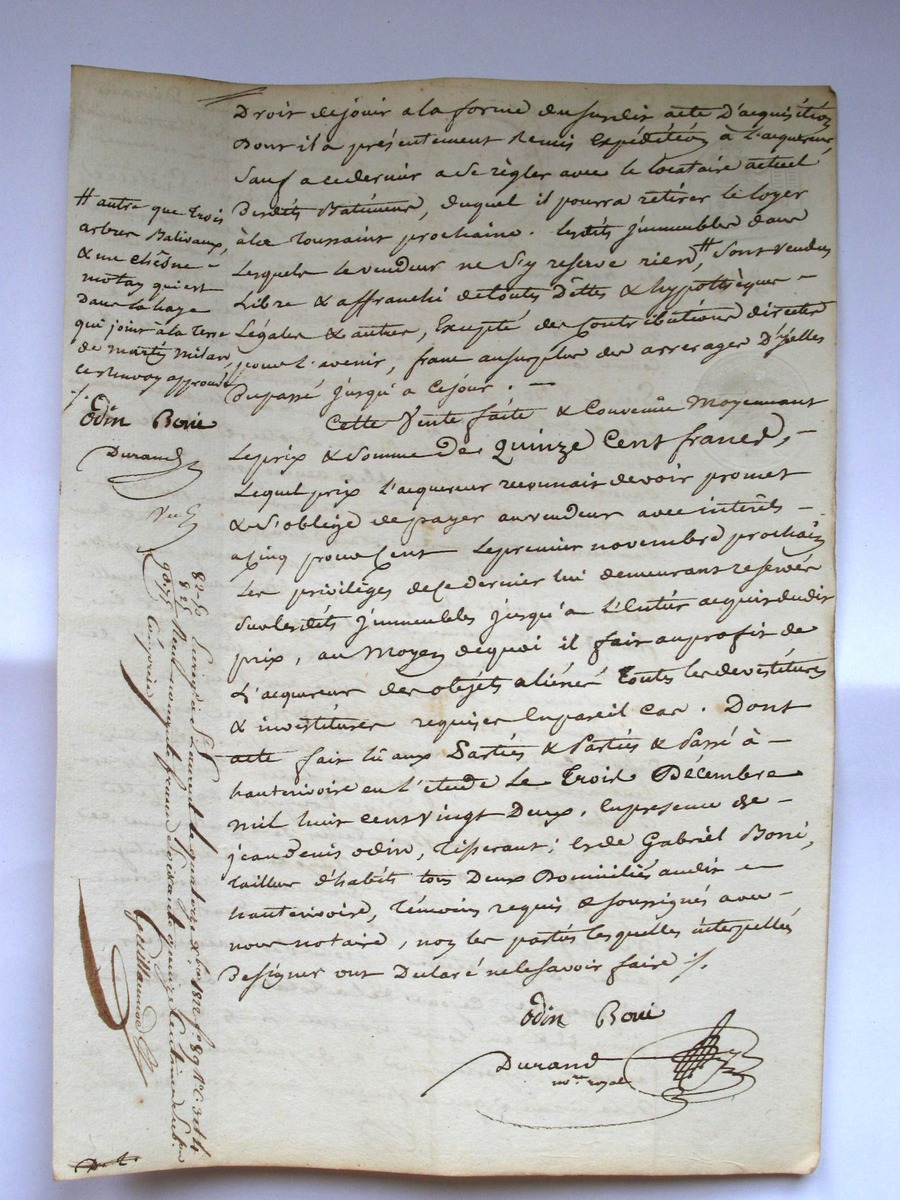 Droit de jouir a la forme du susdit acte D'acquisition
Dont il a présentement Remis Expédition à L'acquereur,
Sauf a ce dernier a se règler avec le locataire actuel
Desdits Batiments, duquel il pourra retirer le loyer
à la Toussaint prochaine. Lesdits jmmeubles dans
Lesquels le vendeur ne s'y reserve rien, # sont vendus
Libre & affranchi de toutes Dettes & hypothèques -
Légales & autres, Excepté des Contributions directes
pour l'avenir, franc au surplus des arrerages D'jcelles
Du passé jusqu'a ce jour. -
Cette Vente faite & Convenüe Moyennant
Le prix & Somme De Quinze Cent francs, -
Lequel prix L'acquereur reconnait devoir promet
& s'oblige de payer au vendeur avec interêts -
a Cinq pour Cent Le premier novembre prochain
Les privilèges de ce dernier lui demeurant reservés
Sur lesdits jmmeubles jusqu'a L'Entier acquit dudit
prix, au Moyen de quoi il fait au profit de
L'acquereur des objets aliénés toutes les devestitures
& investitures requises En pareil cas. Dont
acte fait lû aux Parties & Passé à -
hauterivoire en L'étude Le Trois Décembre
mil huit cent vingt Deux, En presence de -
jean Denis odin, Tisserant, & de Gabriel Borie,
tailleur d'habits tous Deux Domiciliés audit -
hauterivoire, Témoins requis & soussignés avec -
nous notaire, non les parties lesquelles interpellées
De signer ont Déclaré ne le savoir faire ./.
Odin Borie
Durand
no.re royal
# autre que trois
arbres Balivaux,
& un chêne -
motay qui est
Dans la haye
qui joint à la terre
de martés milan,
ce renvoy approuvé
./.
Odin Borie
Durand
82-5
8-25
90-75
Enreg.é à S.t Laurent le quatorze x.bre 1822 f.o 89
Reçu quatre vingt dix francs soixante quinze Centimes
Guillaumod